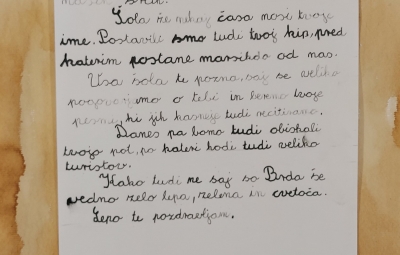 Šola že nekaj časa nosi tvoje
ime. Postavili smo tudi tvoj kip, pred
katerim postane marsikdo od nas.
Vsa šola te pozna, saj se veliko
pogovarjamo o tebi in beremo tvoje
pesmi, ki jih kasneje tudi recitiramo.
Danes pa bomo tudi obiskali
tvojo pot, po kateri hodi tudi veliko
turistov.
Kako tudi ne saj so Brda še
vedno zelo lepa, zelena in cvetoča.
Lepo te pozdravljam.